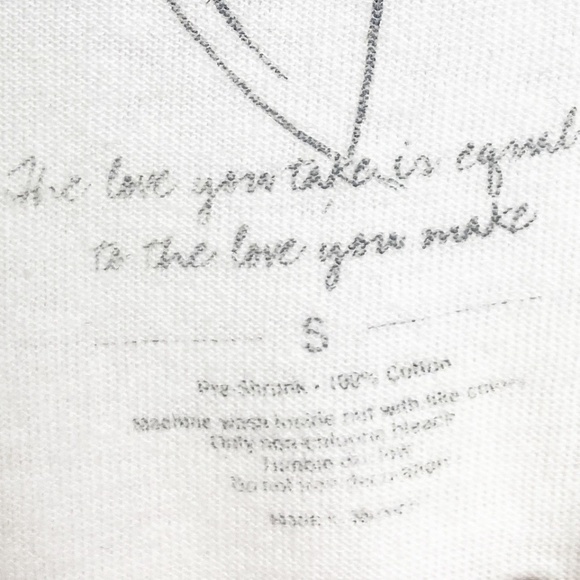 The love you take, is equal
to the love you make
S
Pre-Shrunk • 100% Cotton
Machine wash inside out with like colors
Only non-chlorine bleach
Tumble dry low
Do not iron decoration
Made in